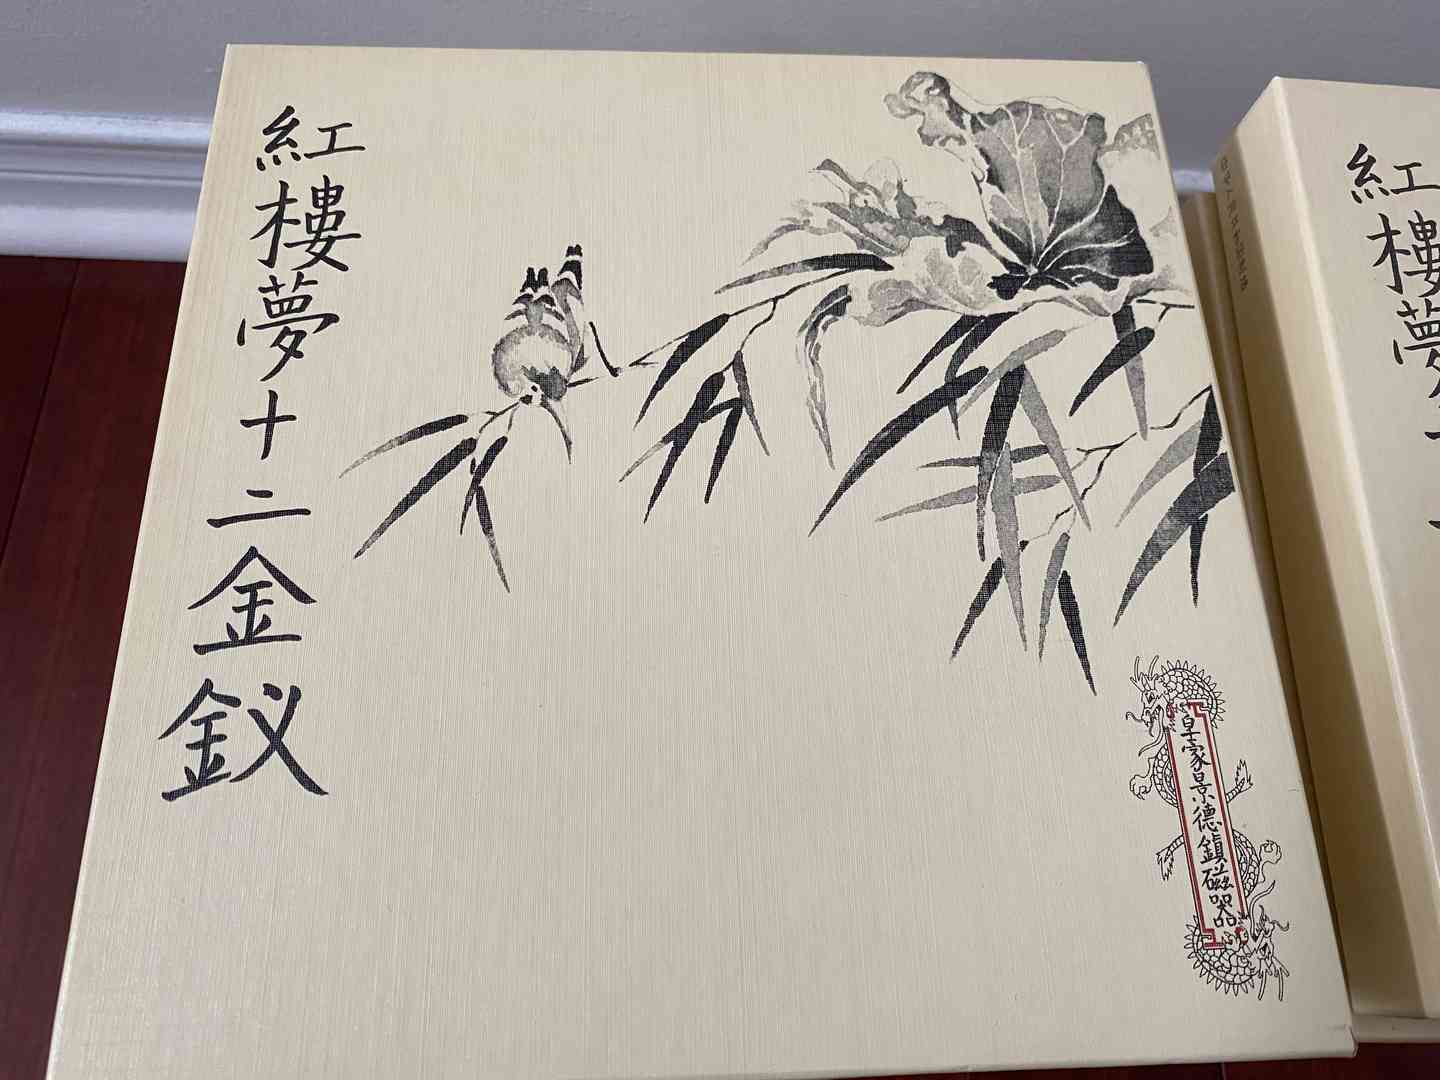 紅樓夢十二金釵
皇家景德鎮磁器
紅樓夢